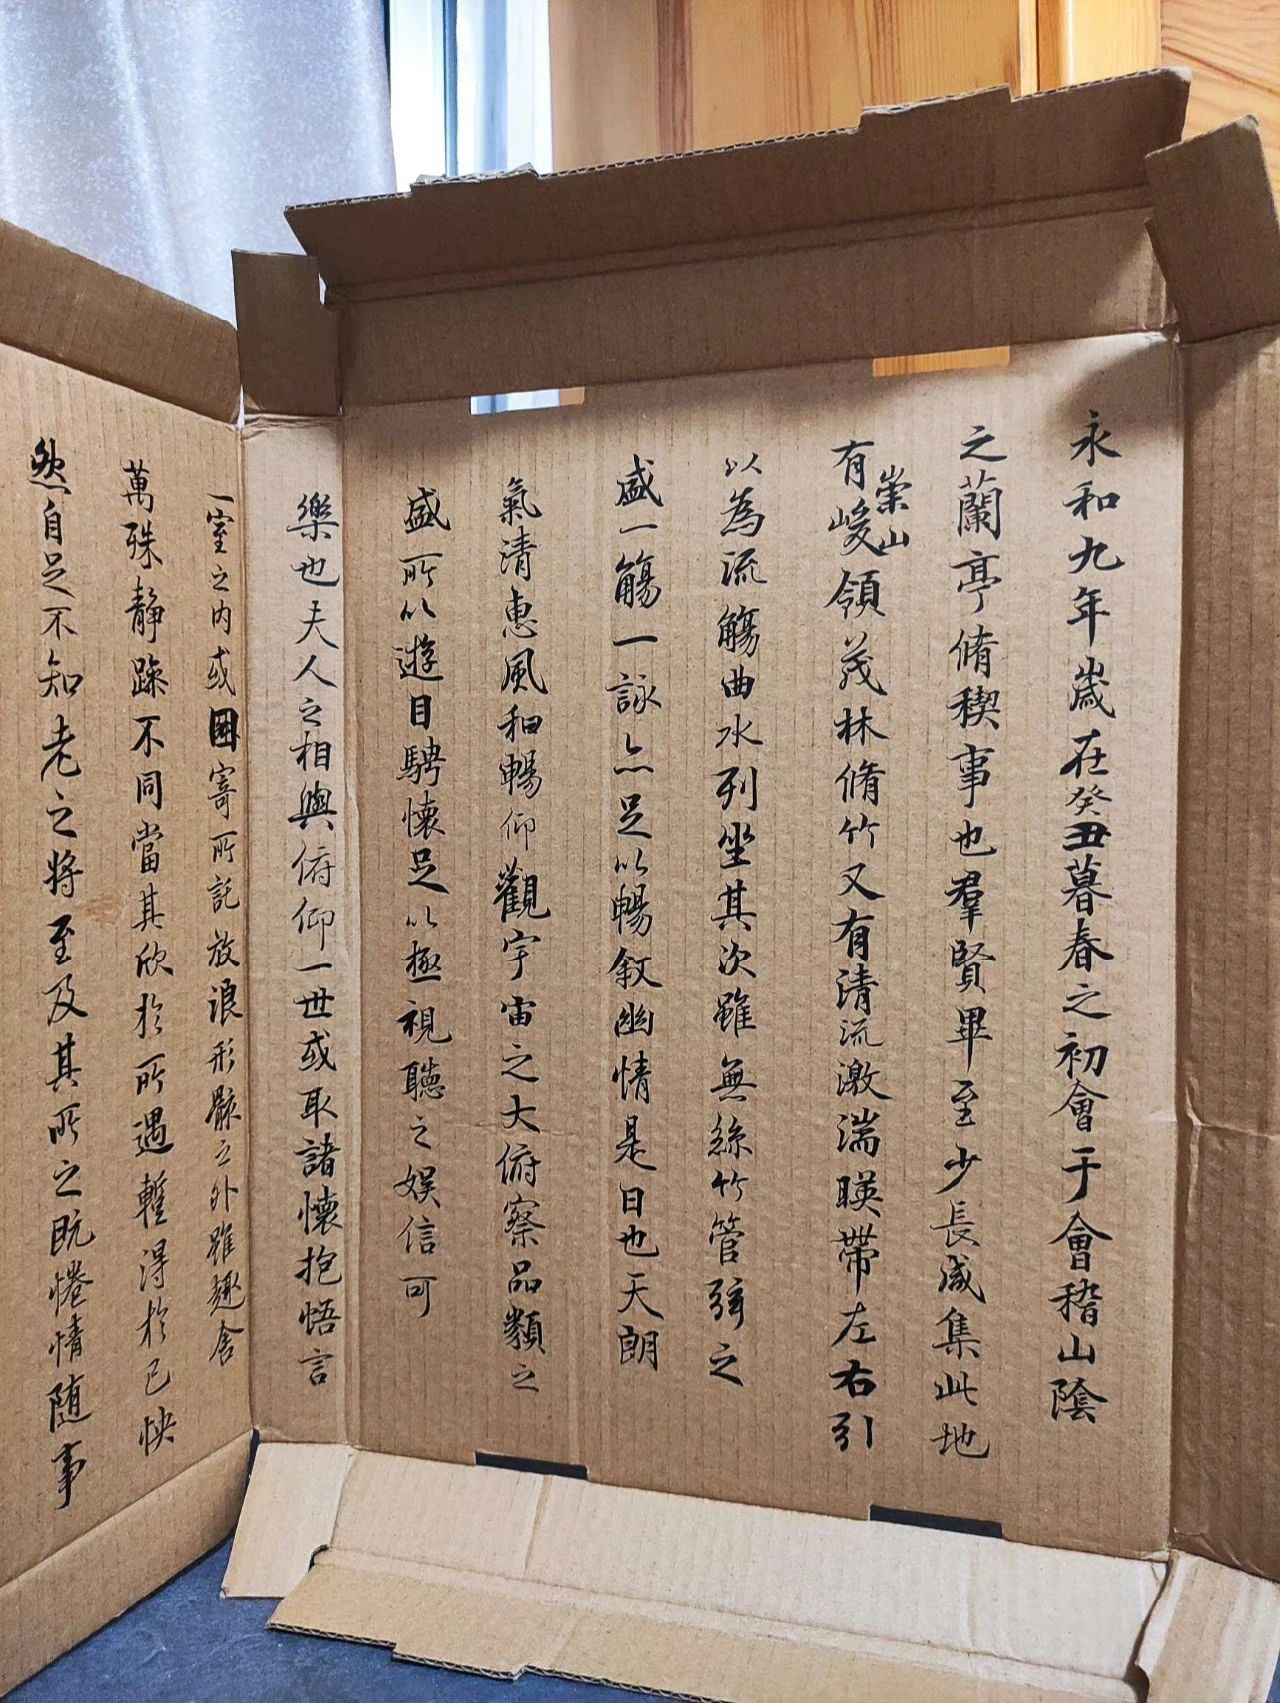 永和九年歲在癸丑暮春之初會于會稽山陰
之蘭亭脩稧事也羣賢畢至少長咸集此地
有崇山峻領茂林脩竹又有清流激湍暎帶左右引
以為流觴曲水列坐其次雖無絲竹管弦之
盛一觴一詠亦足以暢敘幽情是日也天朗
氣清惠風和暢仰觀宇宙之大俯察品類之
盛所以遊目騁懷足以極視聽之娛信可
樂也夫人之相與俯仰一世或取諸懷抱悟言
一室之內或因寄所託放浪形骸之外雖趣舍
萬殊靜躁不同當其欣於所遇暫得於己怏
然自足不知老之將至及其所之既惓情隨事